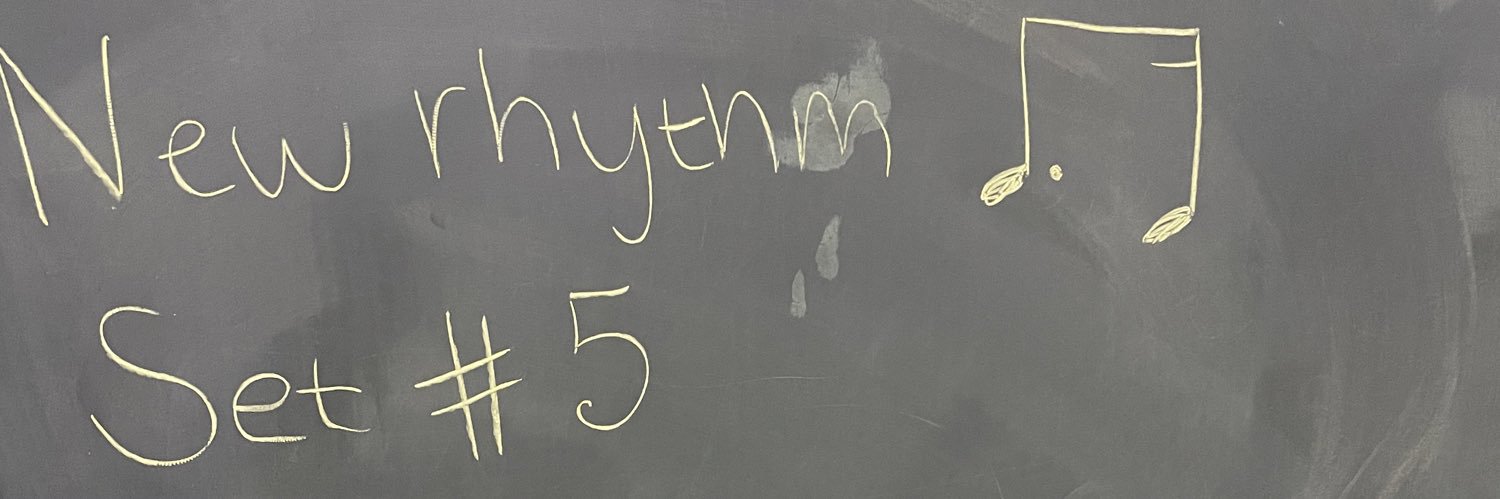 New rhythm
Set #5